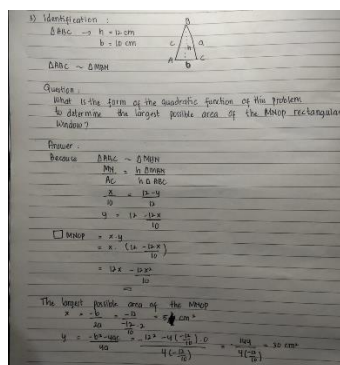 3) Identification :
Δ ABC → h = 12 cm
b = 10 cm
B
c a
h
A C
b
Δ ABC ~ Δ MBN
Question :
What is the form of the quadratic function of this problem
to determine the largest possible area of the MNOP rectangular
window?
Answer :
Because Δ ABC ~ Δ MBN
MN = h Δ MBN
AC h Δ ABC
x = 12-y
10 12
y = 12 - 12x
10
□ MNOP = x.y
= x. (12 - 12x)
10
= 12x - 12x²
10
The largest possible area of the MNOP
x = -b = -12 = 5 cm²
2a -12 . 2
10
y = -b²-4ac = -12² - 4(-12/10).0 = - 144 = 30 cm²
4a 4(-12/10) 4(-12/10)